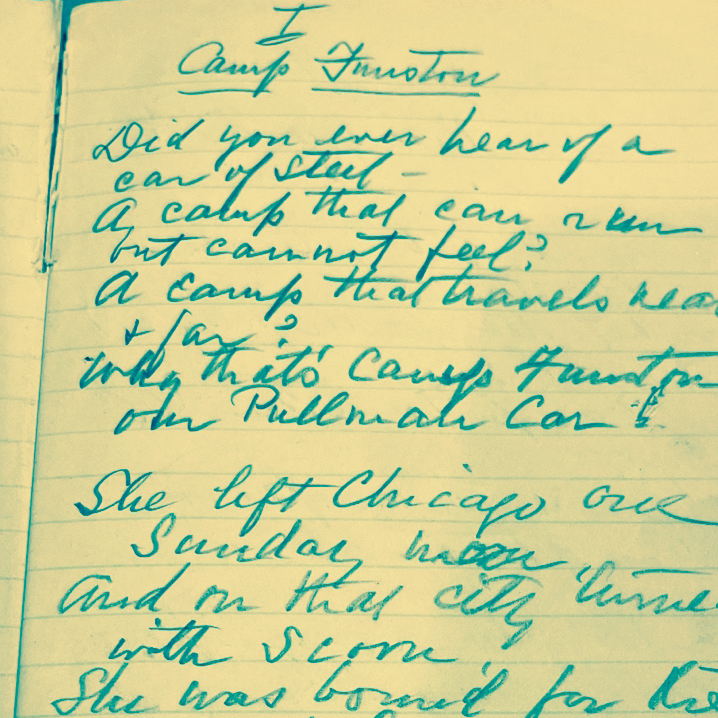 I
Camp Funston
Did you ever hear of a
car of steel -
A camp that can run
but cannot feel?
A camp that travels near
& far?
Why that's Camp Funston
our Pullman Car!
She left Chicago one
Sunday morn
And on that city turne
with scorn,
She was bound for the